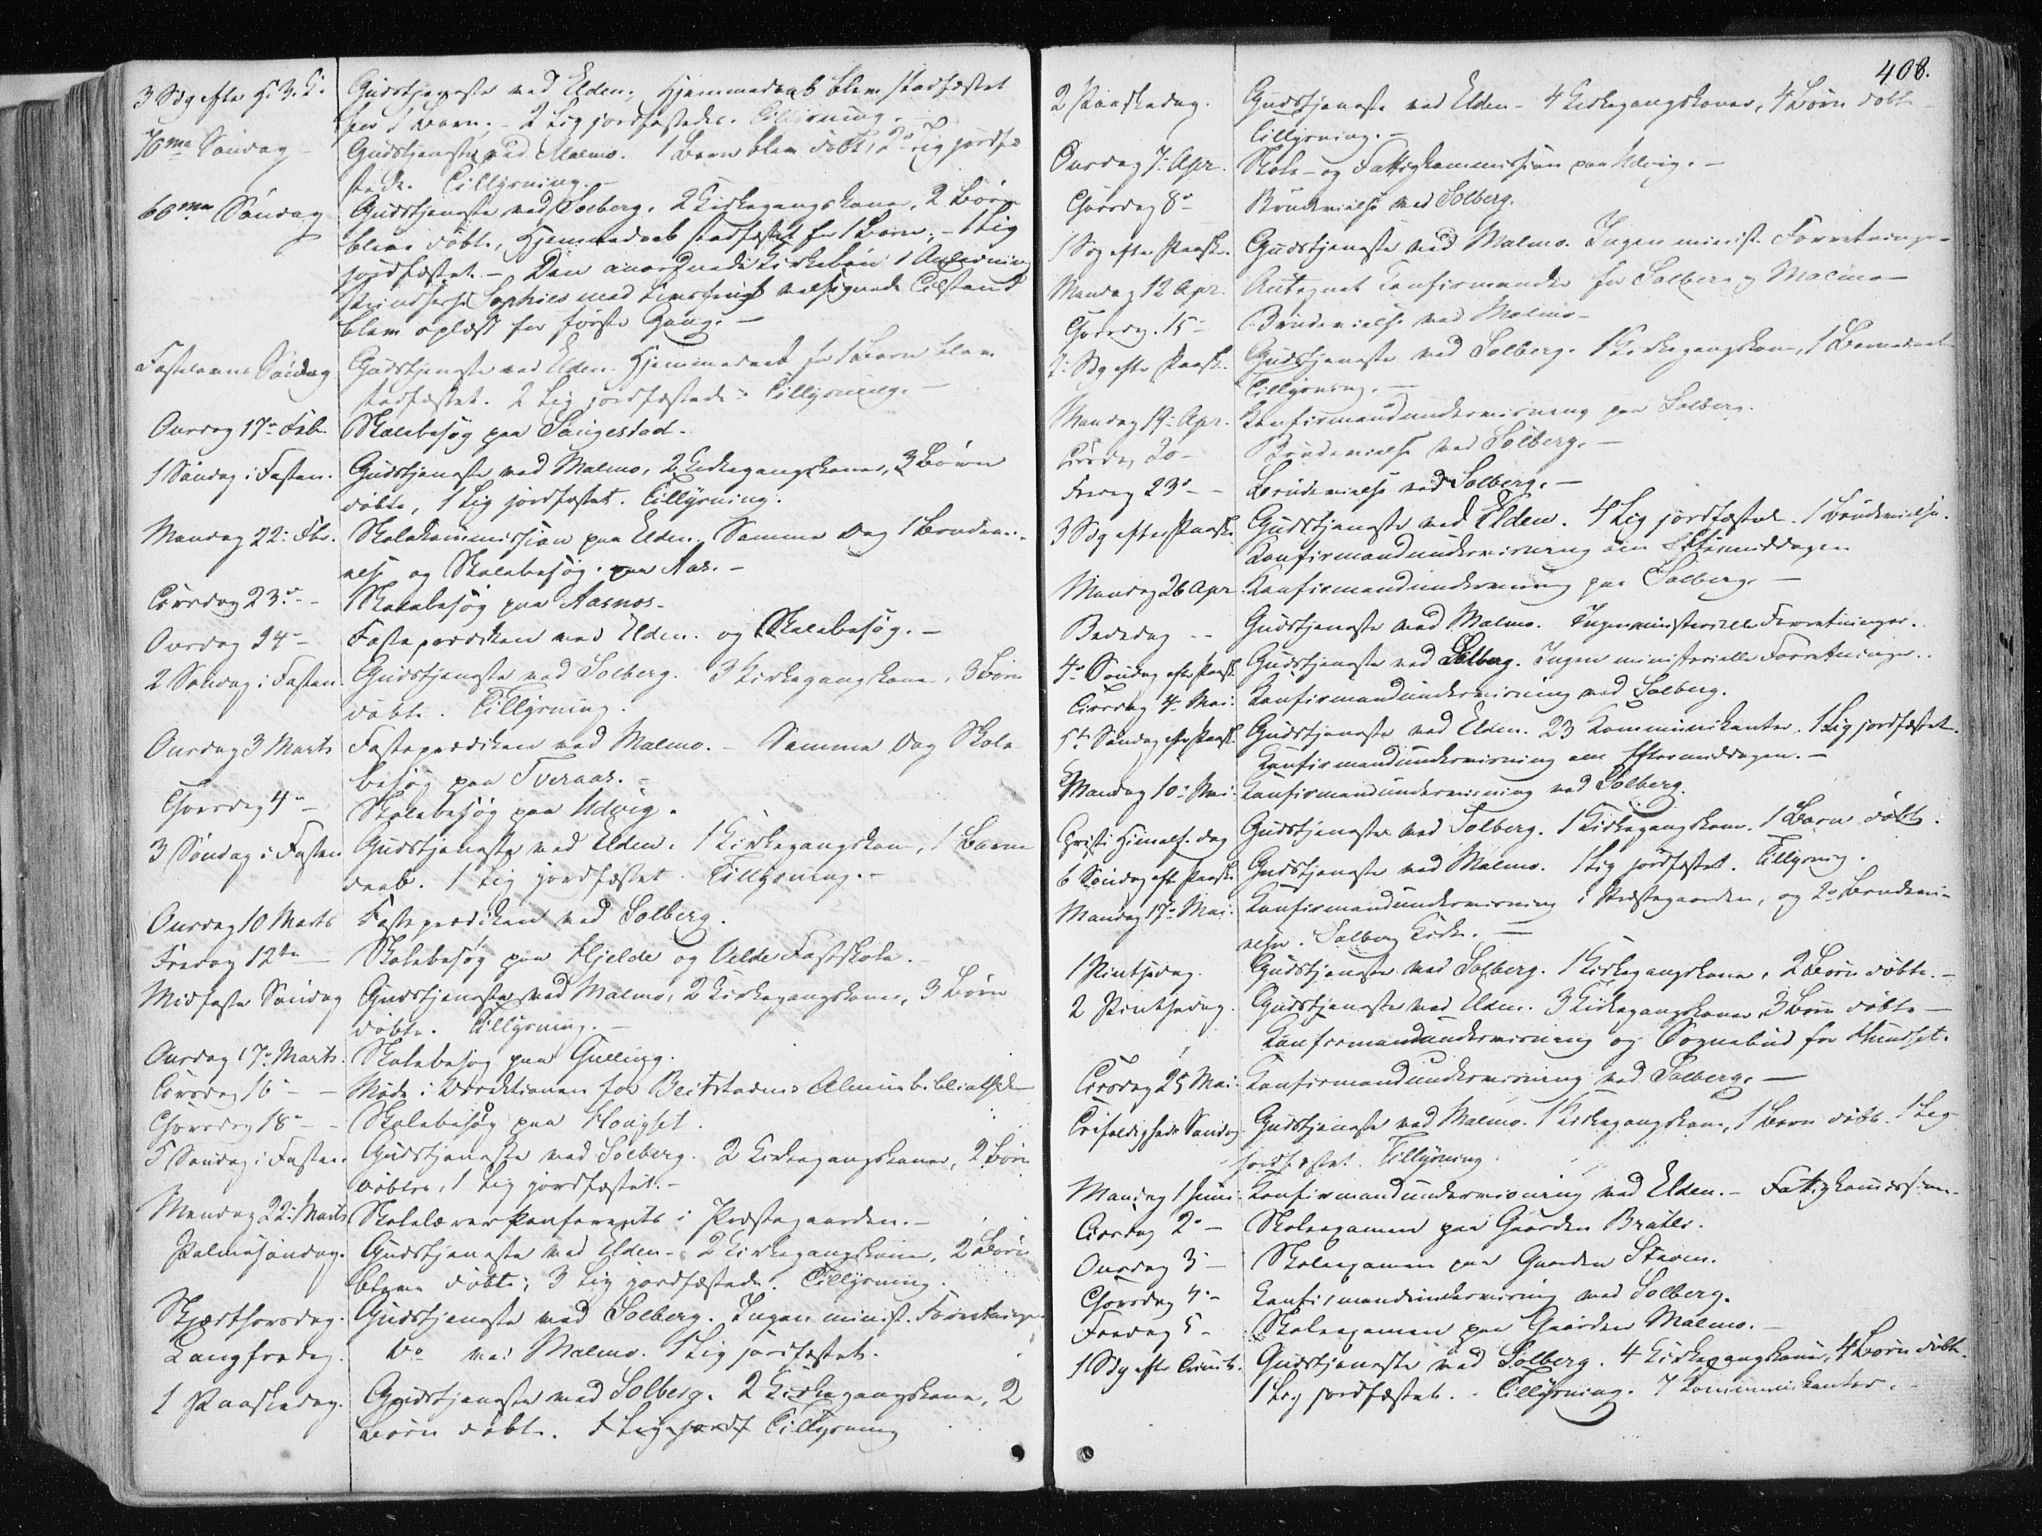 3 Sdg efter H. 3. K.
Gudstjeneste ved Elden. Hjemmedaab blev stadfæstet
for 1 Barn. - 2 Lig jordfæstede. Tillysning.
70me Søndag
Gudstjeneste ved Malmo. 1 Barn blev døbt, 2 Lig jordfæ
stede. Tillysning. -
60me Søndag
Gudstjeneste ved Solberg. 2 Kirkegangskoner, 2 Børn
bleve døbte, Hjemmedaab stadfæstet for 1 Barn, - 1 Lig
jordfæstet. - Den anordnede Kirkebøn i Anledning
Prindsesse Sophies med Livsfrugt velsignede Tilstand
blev oplæst for første Gang. -
Fastelavns Søndag
Gudstjeneste ved Elden. Hjemmedaab for 1 Barn blev
stadfæstet. 2 Lig jordfæstede. Tillysning. -
Onsdag 17de Feb.
Skolebesøg paa Sangestad.
1 Søndag i Fasten.
Gudstjeneste ved Malmo, 2 Kirkegangskoner, 3 Børn
døbte, 1 Lig jordfæstet. Tillysning.
Mandag 22: Fbr.
Skolekommission paa Elden. Samme Dag 1 Brudevi-
else og Skolebesøg paa Aas. -
Tirsdag 23de -
Skolebesøg paa Aasnes.
Onsdag 24 -
Fasteprædiken ved Elden. og Skolebesøg. -
2 Søndag i Fasten.
Gudstjeneste ved Solberg. 3 Kirkegangskoner, 3 Børn
døbte. Tillysning.
Onsdag 3 Marts
Fasteprædiken ved Malmo. - Samme Dag Skole
besøg paa Tveraas. -
Thorsdag 4 -
Skolebesøg paa Udvig.
3 Søndag i Fasten
Gudstjeneste ved Elden. 1 Kirkegangskone, 1 Barne
daab. 1 Lig jordfæstet. Tillysning. -
Onsdag 10 Marts
Fasteprædiken ved Solberg.
Fredag 12te -
Skolebesøg paa Hjelde og Velde Fastskole.
Midfaste Søndag
Gudstjeneste ved Malmo, 2 Kirkegangskoner, 3 Børn
døbte. Tillysning. -
Onsdag 17 Marts.
Skolebesøg paa Gulling.
Tirsdag 16 - -
Møde i Directionen for Beitstadens Almuebibliothek
Thorsdag 18 - -
Skolebesøg paa Hougset.
5 Søndag i Fasten.
Gudstjeneste ved Solberg. 2 Kirkegangskoner, 2 Børn
døbte, 1 Lig jordfæstet. -
Mandag 22: Marts
Skolelærerkonferents i Præstegaarden. -
Palmesøndag.
Gudstjeneste ved Elden. 2 Kirkegangskoner, 2 Børn
bleve døbte; 3 Lig jordfæstede. Tillysning.
Skjærthorsdag.
Gudstjeneste ved Solberg. Ingen minist. Forretninger
Langfredag.
Do ved Malmo. 1 Lig jordfæstet.
1 Paaskedag.
Gudstjeneste ved Solberg. 2 Kirkegangskoner, 2
Børn døbte. 1 Lig jordf Tillysning
408.
2 Paaskedag.
Gudstjeneste ved Elden - 4 Kirkegangskoner, 4 Børn døbte
Tillysning. -
Onsdag 7: Apr.
Skole- og Fattigkommission paa Udvig. -
Thorsdag 8 -
Brudevielse ved Solberg.
1 Sdg efter Paaske.
Gudstjeneste ved Malmo. Ingen minist. Forretninger -
Mandag 12 Apr.
Antegnet Konfirmander for Solberg og Malmo -
Thorsdag. 15 -
Brudevielse ved Malmo -
2: Sdg efter Paaske.
Gudstjeneste ved Solberg. 1 Kirkegangskone, 1 Barnedaab
Tillysning. -
Mandag 19: Apr.
Konfirmandundervisning paa Solberg.
Tirsdag 20 -
Brudevielse ved Solberg. -
Fredag 23 - -
Brudevielse ved Solberg. -
3 Sdg efter Paaske
Gudstjeneste ved Elden. 4 Lig jordfæstede. 1 Brudevielse.
Konfirmandundervisning om Eftermiddagen
Mandag 26 Apr.
Konfirmandundervisning paa Solberg. -
Bededag - -
Gudstjeneste ved Malmo. Ingen ministerielle Forretninger.
4de Søndag efter Paaske
Gudstjeneste ved Solberg. Ingen ministerielle Forretninger.
Tirsdag 4 Mai:
Konfirmandundervisning ved Solberg.
5te Søndag efter Paaske.
Gudstjeneste ved Elden. 23 Kommunikanter. 1 Lig jordfæstet.
Konfirmandundervisning om Eftermiddagen. -
Mandag 10: Mai:
Konfirmandundervisning ved Solberg.
Christi Himmelf. dag
Gudstjeneste ved Solberg. 1 Kirkegangskone. 1 Barn døbt.
6 Søndag efter Paaske.
Gudstjeneste ved Malmo. 1 Lig jordfæstet. Tillysning.
Mandag 17 Mai:
Konfirmandundervisning i Præstegaarden, og 2 Brudevi-
elser. Solberg Kirke. -
1 Pintsedag.
Gudstjeneste ved Solberg. 1 Kirkegangskone, 2 Børn døbte. -
2 Pintsedag.
Gudstjeneste ved Elden. 3 Kirkegangskoner, 3 Børn døbte -
Konfirmandundervisning og Sognebud for
Tirsdag 25 Mai:
Konfirmandundervisning ved Solberg. -
Trefoldigheds Søndag
Gudstjeneste ved Malmo. 1 Kirkegangskone, 1 Barn døbt. 1 Lig
jordfæstet. Tillysning
Mandag 1 Juni.
Konfirmandundervisning ved Elden. - Fattigkommission.
Tirsdag 2 -
Skoleexamen paa Gaarden Bratli.
Onsdag 3 -
Skoleexamen paa Gaarden Stavem.
Thorsdag 4 -
Konfirmandundervisning ved Solberg.
Fredag 5 -
Skoleexamen paa Gaarden Malmo. -
1 Sdg efter Trinit.
Gudstjeneste ved Solberg. 4 Kirkegangskoner, 4 Børn døbte.
1 Lig jordfæstet. - Tillysning. 7 Kommunikanter.